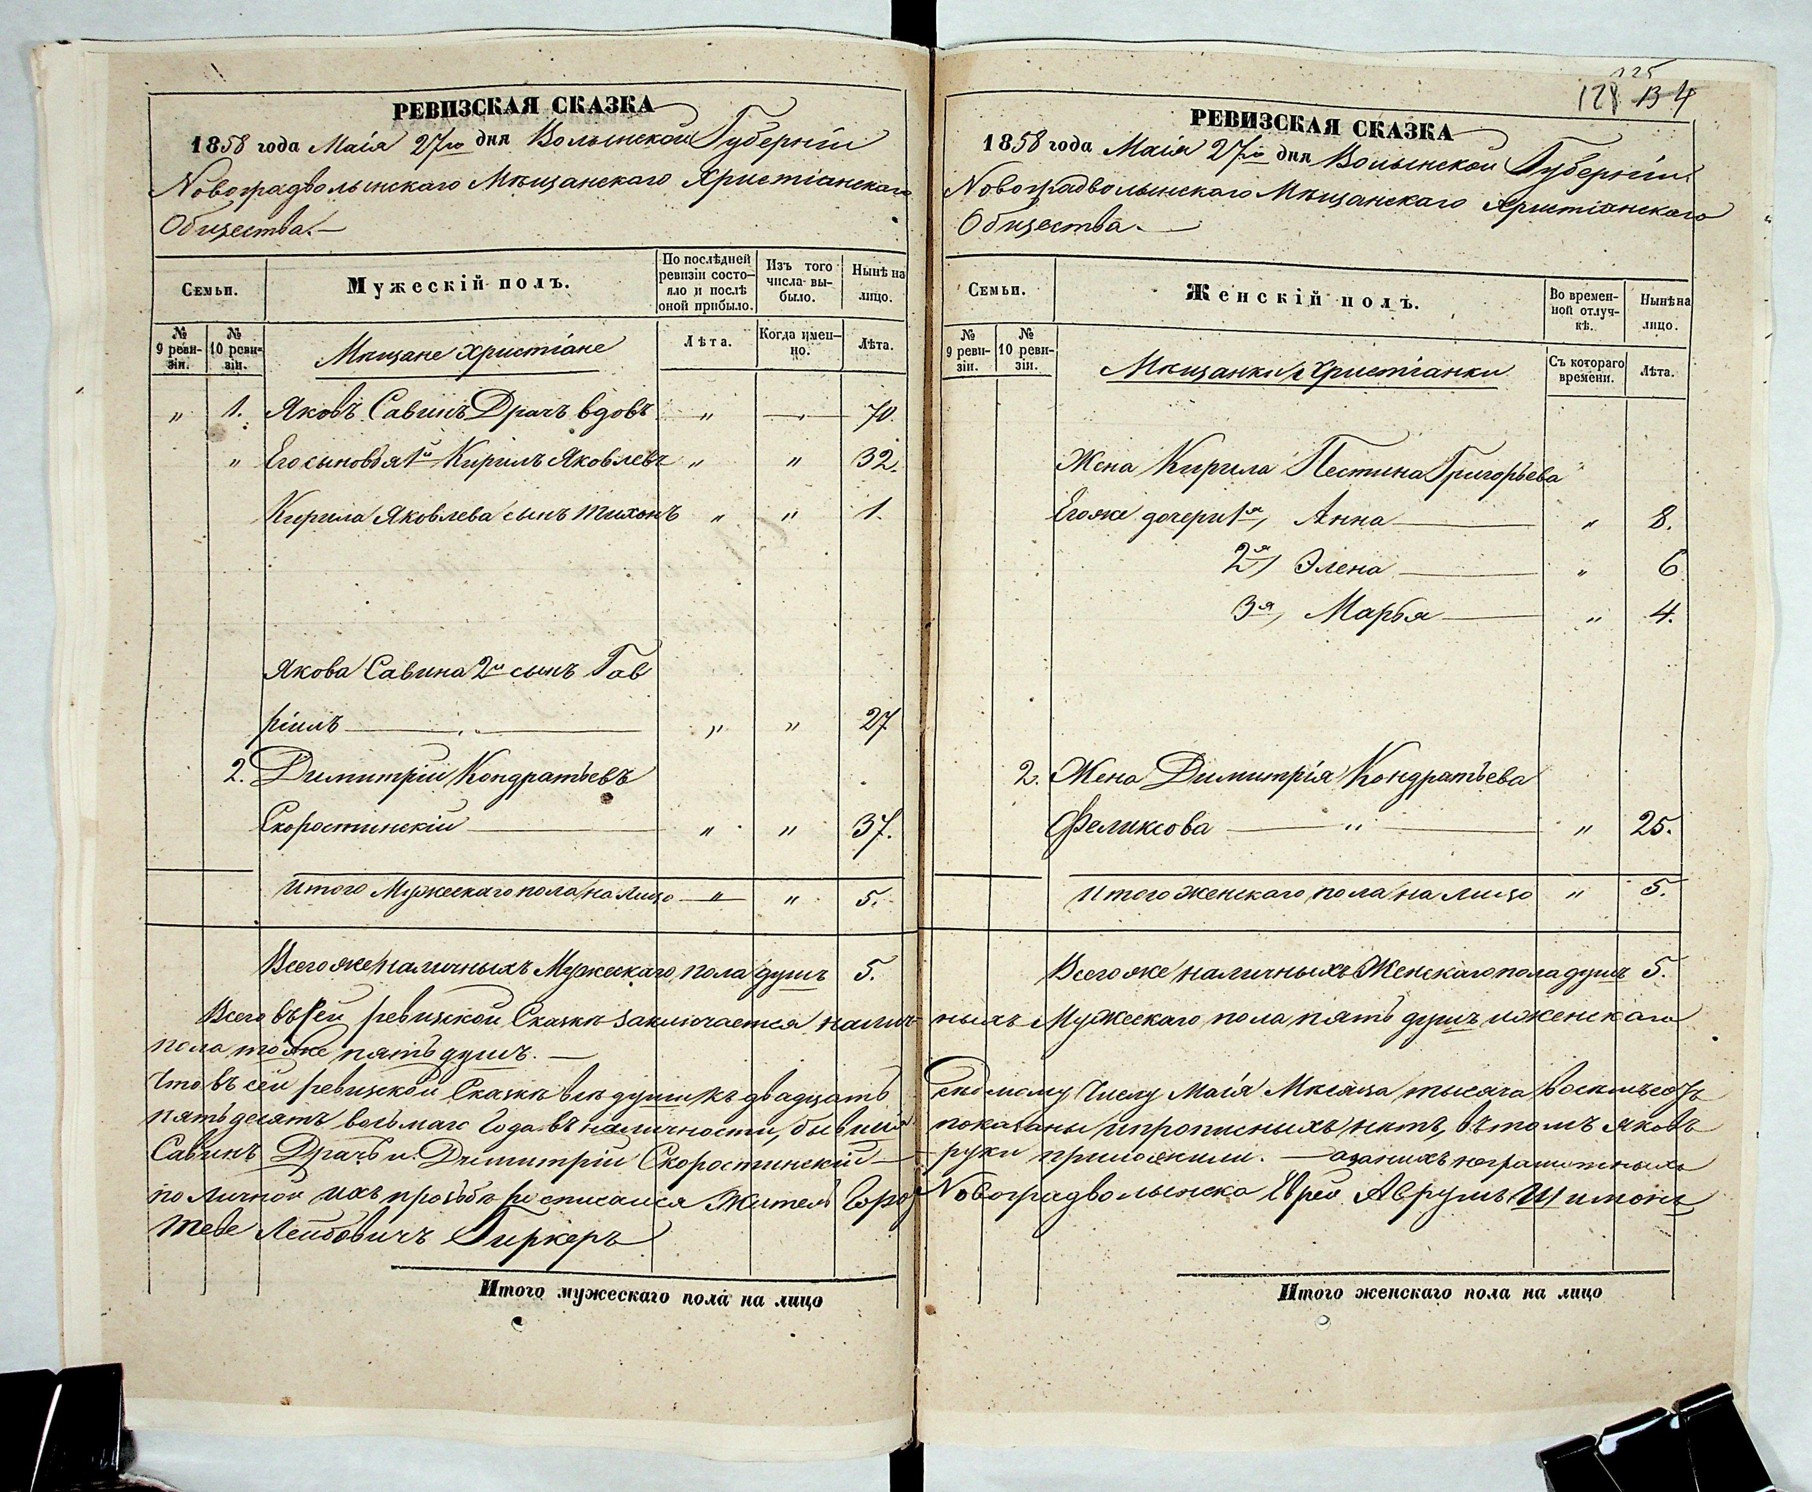 РЕВИЗСКАЯ СКАЗКА
1858 года Маія 27го дня Волынской Губерніи
Новоградволынскаго Мѣщанскаго Христіанскаго
Общества.
Семьи.
Мужескій полъ.
По послѣдней ревизіи состояло и послѣ оной прибыло.
Изъ того числа выбыло.
Нынѣ на лицо.
№ 9 ревизіи.
№ 10 ревизіи.
Мѣщане Христіане
Лѣта.
Когда именно.
Лѣта.
„ 1. Яковъ Савинъ Драчъ вдовъ „ — 70.
„ Его сыновья 1й Кирилъ Яковлевъ „ „ 32.
Кирила Яковлева сынъ Тихонъ „ „ 1.
Якова Савина 2й сынъ Гав
ріилъ „ „ 27
2. Димитрій Кондратьевъ
Скоростинскій „ „ 37.
Итого Мужескаго пола на лицо „ „ 5.
Всего же наличныхъ Мужескаго пола душъ 5.
Всего въ сей ревизской Сказкѣ заключается налич
пола тоже пять душъ.
Что въ сей ревизской Сказкѣ всѣ души къ двадцать
пятьдесятъ восьмаго Года въ наличности, бывшія
Савинъ Драчъ и Димитрій Скоростинскій
по личной ихъ прозьбѣ росписался Житель Город
Теве Лейбовичъ Гиркеръ
Итого мужескаго пола на лицо
125
128 134
РЕВИЗСКАЯ СКАЗКА
1858 года Маія 27го дня Волынской Губерніи.
Новоградволынскаго Мѣщанскаго Христіанскаго
Общества.
Семьи.
Женскій полъ.
Во временной отлучкѣ.
Нынѣ на лицо.
№ 9 ревизіи.
№ 10 ревизіи.
Мѣщанки Христіанки
Съ котораго времени.
Лѣта.
Жена Кирила Пестина Григорьева „
Его же дочери 1я, Анна „ 8.
2я, Элена „ 6
3я, Марья „ 4.
2. Жена Димитрія Кондратьева
Феликсова „ „ 25.
Итого женскаго пола на лицо „ 5.
Всего же наличныхъ Женскаго пола душъ 5.
ныхъ Мужескаго пола пять душъ и женскаго
седмому Числу Маія Мѣсяца тысяча восемьсотъ
показаны и прописныхъ нѣтъ, въ томъ Яковъ
руки приложили. — а за нихъ неграмотныхъ
Новоградволынска Еврей Аврумъ Шимонъ
Итого женскаго пола на лицо